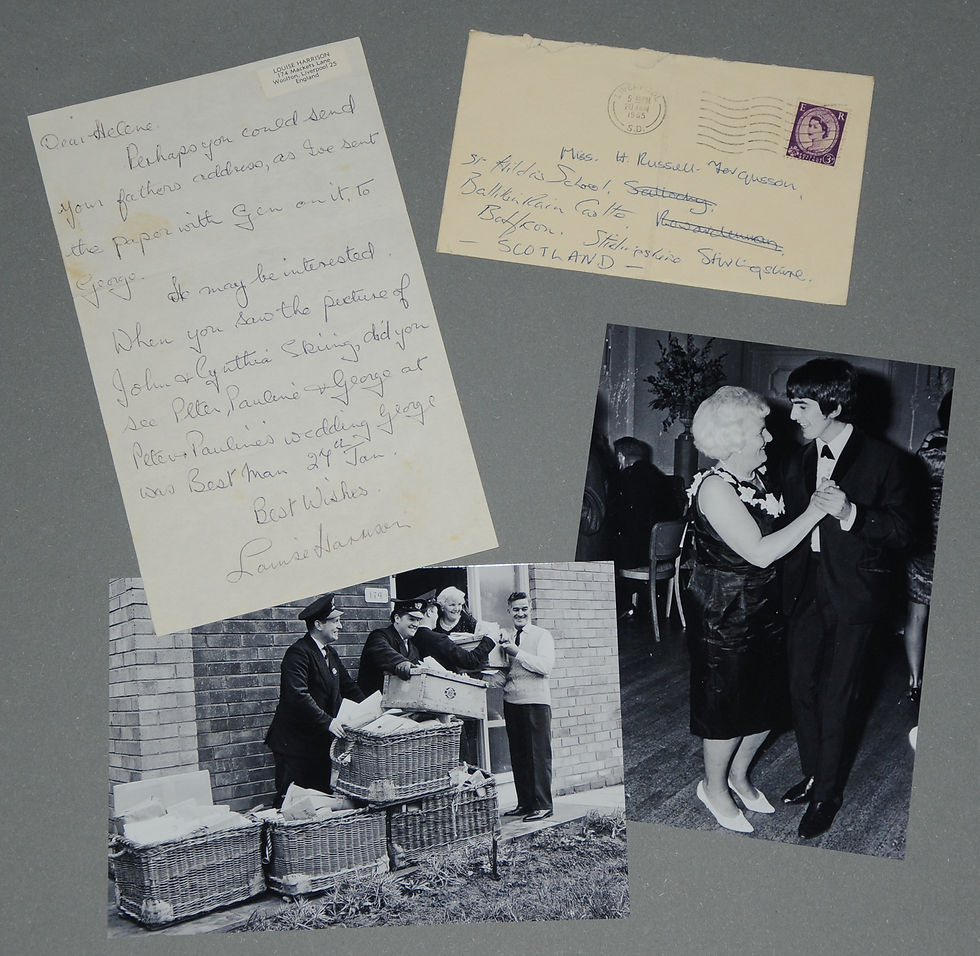 LOUISE HARRISON
174 Mackets Lane
Woolton, Liverpool 25
England
Dear Helene.
Perhaps you could send
your fathers address, as I've sent
the paper with Gen on it, to
George. He may be interested.
When you saw the picture of
John & Cynthia Skiing, did you
see Peter, Pauline & George at
Peter & Pauline's wedding George
was Best Man 24th Jan.
Best Wishes.
Louise Harrison
LIVERPOOL
5-PM
1965
S.D.
E R
3D
Miss. H. Russell-Fergusson,
St Kilda's School,
Ballikinrain Castle
Balfron. Stirlingshire Stirlingshire.
- SCOTLAND -
174